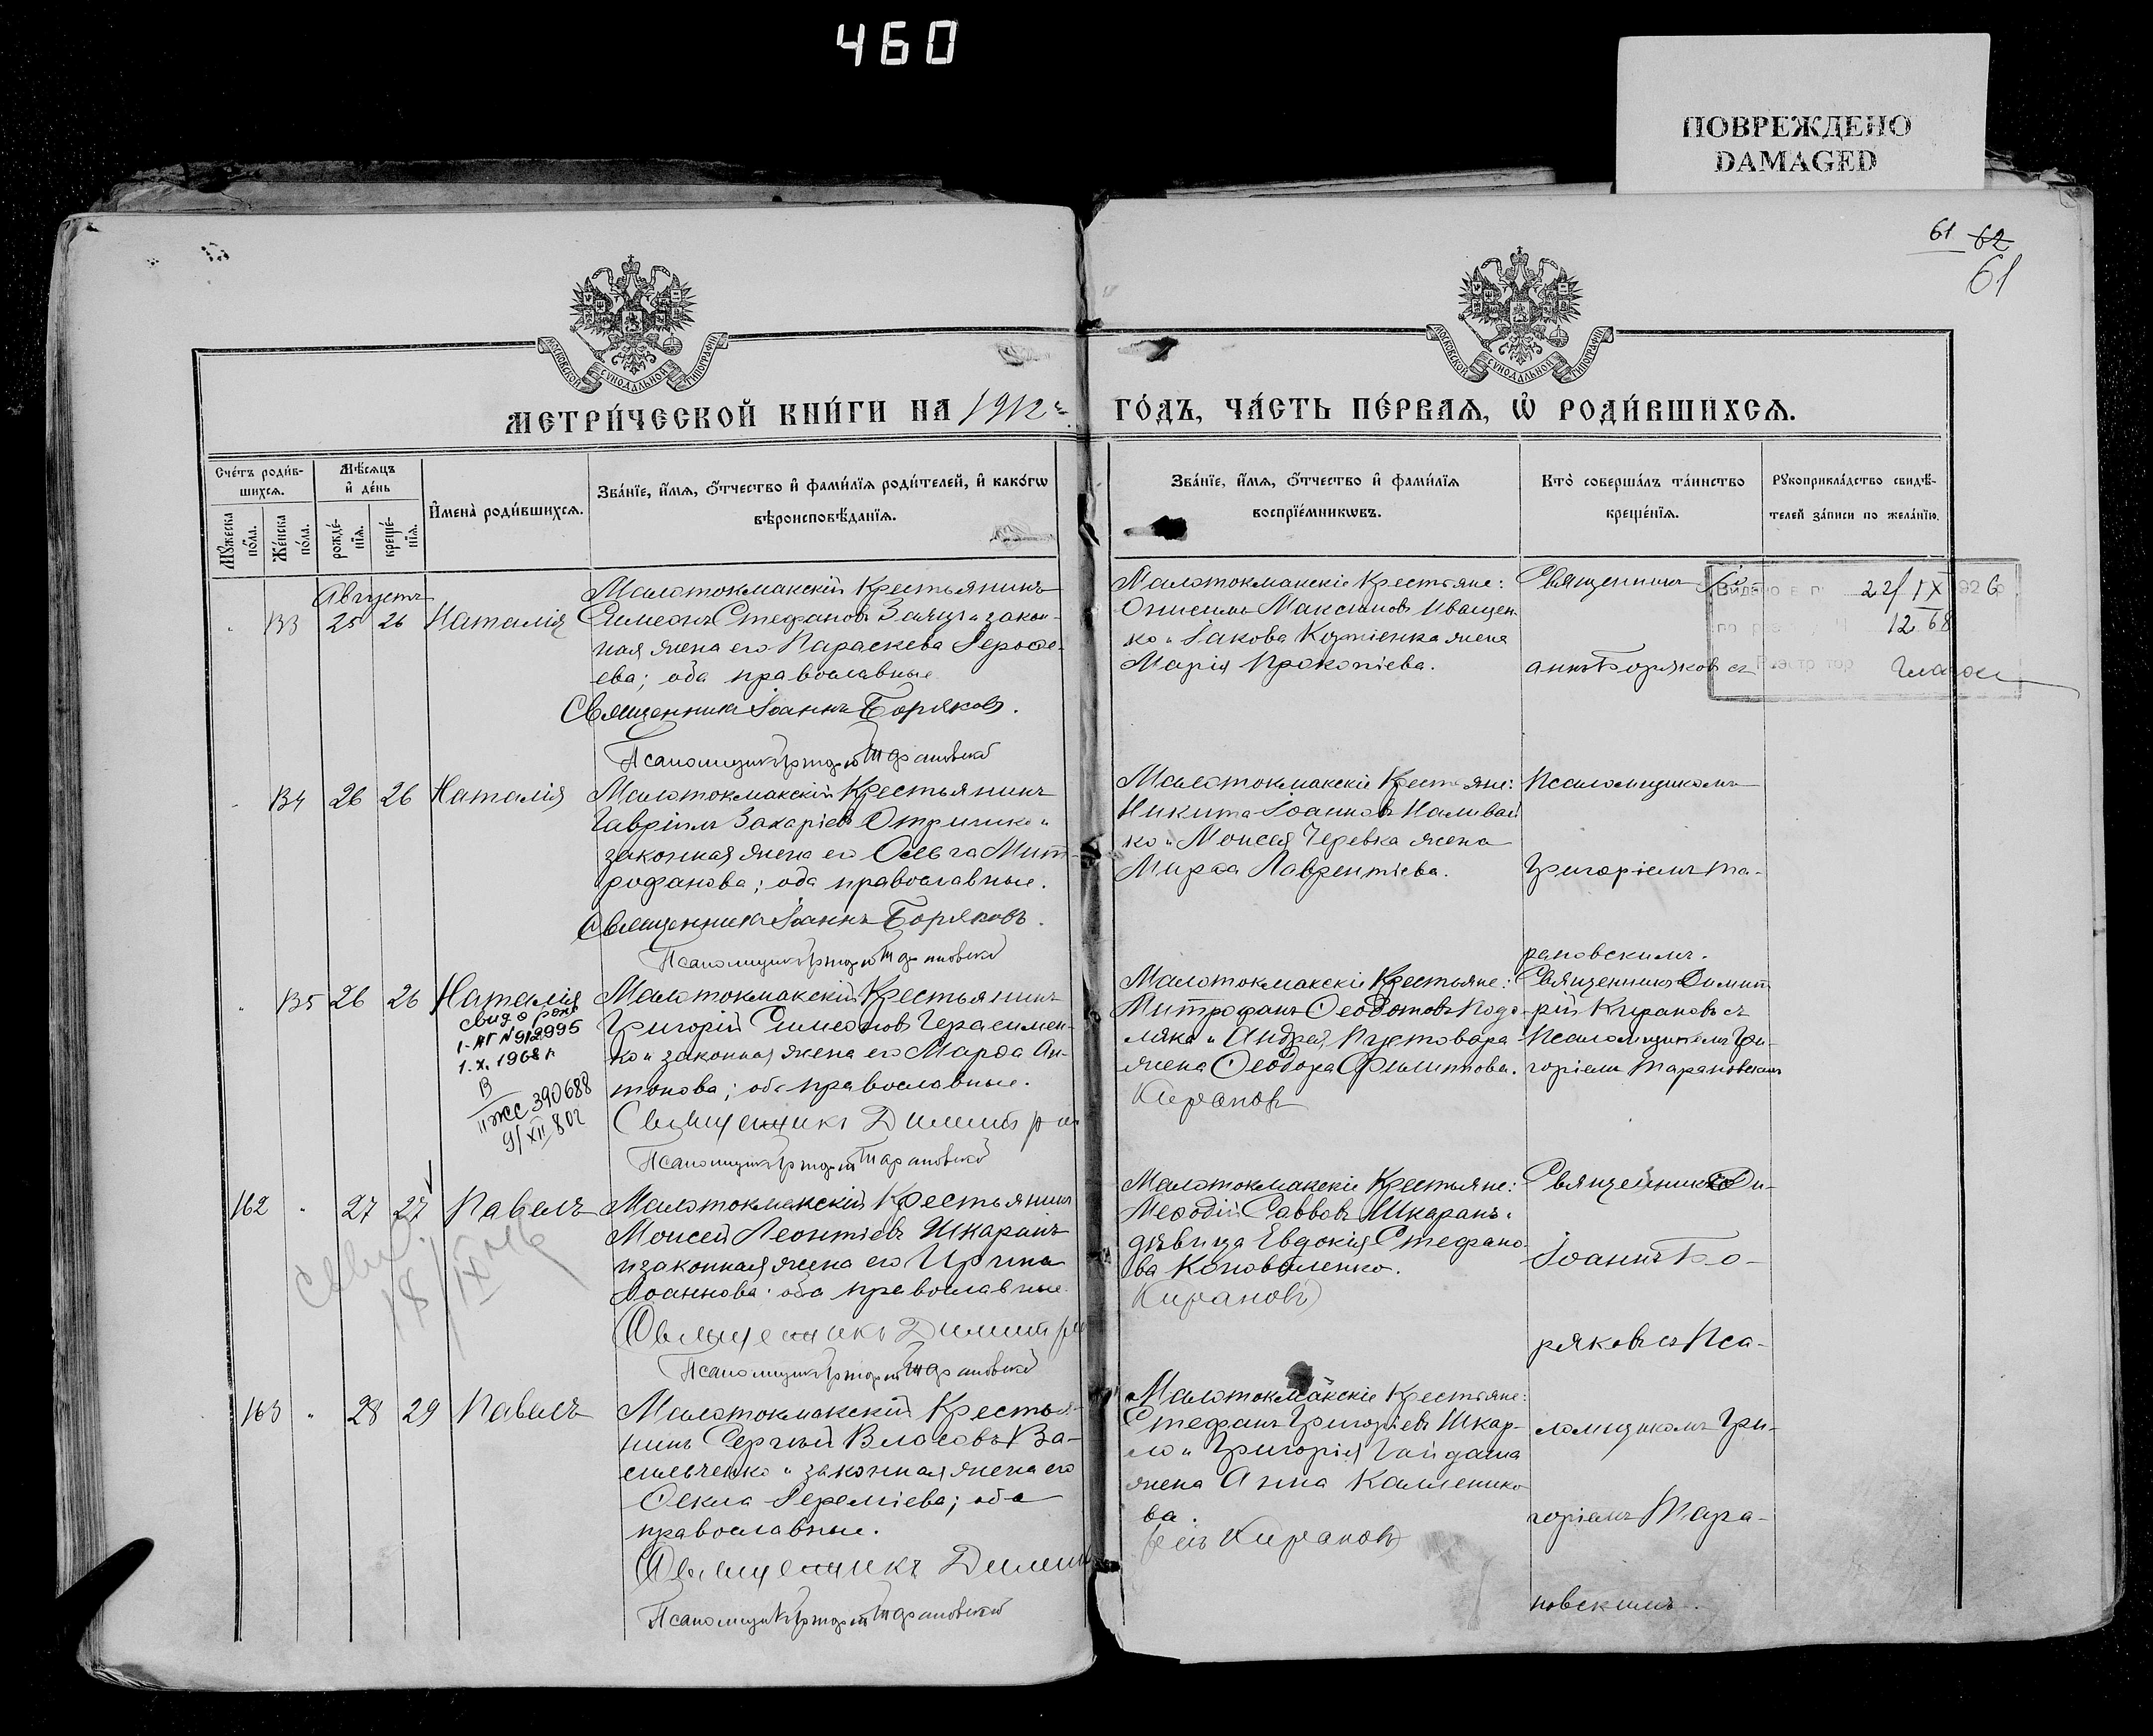 460
ПОВРЕЖДЕНО
DAMAGED
61 62
61
МОСКОВСКОЙ СѴНОДАЛЬНОЙ ТИПОГРАФІИ
МОСКОВСКОЙ СѴНОДАЛЬНОЙ ТИПОГРАФІИ
МЕТРИ́ЧЕСКОЙ КНИ́ГИ НА 1912 ГО́ДЪ, ЧА́СТЬ ПЕ́РВАѦ, Ѡ҆ РОДИ́ВШИХСѦ.
Сче́тъ роди́в-
шихсѧ.
Мꙋ́жеска по́ла.
Же́нска по́ла.
Мѣ́сѧцъ
и҆ де́нь
рожде́-
нїѧ.
креще́-
нїѧ.
И҆мена̀ роди́вшихсѧ.
Зва́нїе, и҆́мѧ, ѻ҆́тчество и҆ фами́лїѧ роди́телей, и҆ како́гѡ
вѣроисповѣ́данїѧ.
Зва́нїе, и҆́мѧ, ѻ҆́тчество и҆ фами́лїѧ
воспрїе́мникѡвъ.
Кто̀ соверша́лъ та́инство
креще́нїѧ.
Рꙋкоприкла́дство свидѣ́-
телей за́писи по жела́нїю.
Августъ
133 25 26 Наталія
Малотокмакскій Крестьянинъ
Симеонъ Стефановъ Заяцъ и закон-
ная жена его Параскева Іерофе-
ева; оба православные
Священникъ Іоаннъ Боряковъ.
Псаломщикъ Григорій Тарановскій
Малотокмакскіе Крестьяне:
Онисимъ Максимовъ Иващен-
ко и Іакова Козтіенка жена
Марія Прокопіева.
Священникъ Іо-
аннъ Боряковъ съ
22/IX
12 68
134 26 26 Наталія
Малотокмакскій Крестьянинъ
Гавріилъ Захаріевъ Отришко и
законная жена его Ольга Мит-
рофанова; оба православные.
Священникъ Іоаннъ Боряковъ.
Псаломщикъ Григорій Тарановскій
Малотокмакскіе Крестьяне:
Никита Іоанновъ Наливай-
ко и Моисея Черевка жена
Марѳа Лаврентіева.
Псаломщикомъ
Григоріемъ Та-
рановскимъ.
135 26 26 Наталія
свид о рожд
1-АГ №912995
1.X.1968г
II ЖС 390688
9/XII 80г
Малотокмакскій Крестьянинъ
Григорій Симеоновъ Герасимен-
ко и законная жена его Марѳа Ан-
тонова; оба православные.
Священникъ Димитрій
Псаломщикъ Григорій Тарановскій
Малотокмакскіе Крестьяне:
Митрофанъ Ѳеодотовъ Кодо-
ляка и Андрея Пустовара
жена Ѳеодора Филиппова.
Кирановъ
Священникъ Димит-
рій Кирановъ съ
Псаломщикомъ Гри-
горіемъ Тарановскимъ
162 27 27 Павелъ
18/IX
Малотокмакскій Крестьянинъ
Моисей Леонтіевъ Шкаранъ
и законная жена его Ирина
Іоаннова; оба православные.
Священникъ Димитрій
Псаломщикъ Григорій Тарановскій
Малотокмакскіе Крестьяне:
Меѳодій Саввовъ Шкаранъ и
дѣвица Евдокія Стефано-
ва Коноваленко.
Кирановъ
Священникъ
Іоаннъ Бо-
ряковъ съ Пса-
163 28 29 Павелъ
Малотокмакскій Крестья-
нинъ Сергѣй Власовъ Ва-
сильченко и законная жена его
Ѳекла Іереміева; оба
православные.
Священникъ Димит
Псаломщикъ Григорій Тарановскій
Малотокмакскіе Крестьяне:
Стефанъ Григоріевъ Шкар-
ло и Григорія Гайдаша
жена Анна Каллиников-
ва.
рій Кирановъ
ломщикомъ Гри-
горіемъ Тара-
новскимъ.